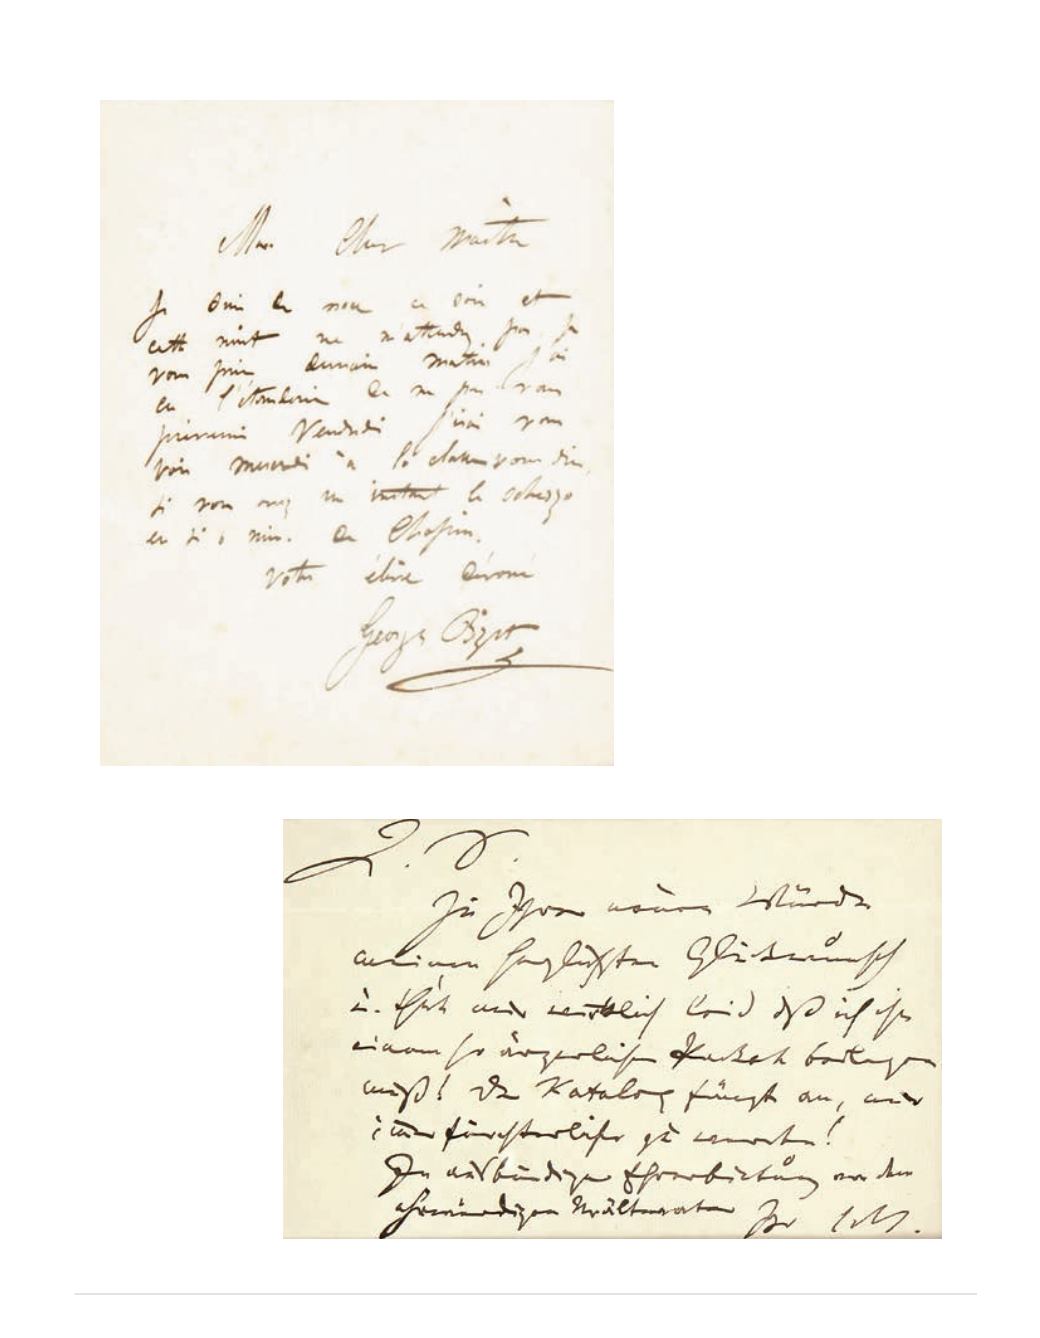 Mon Cher maître
Je suis de noce ce soir et
cette nuit ne m'attendez pas, je
vous prie demain matin j'ai
eu l'étourderie de ne pas vous
prévenir Vendredi j'irai vous
voir mercredi à la classe vous dire
si vous avez un instant le scherzo
en si b min. de Chopin.
votre élève dévoué
Georges Bizet
L. D.
Zu Ihrer neuen Würde
meinen herzlichsten Glückwunsch
u. thut mir wirklich Leid daß ich
einem so ärgerlichen
muß! Der Katalog fängt an, mir
immer fürchterlicher zu werden!
In Ehrerbietung vor dem
ehrwürdigen Ihr